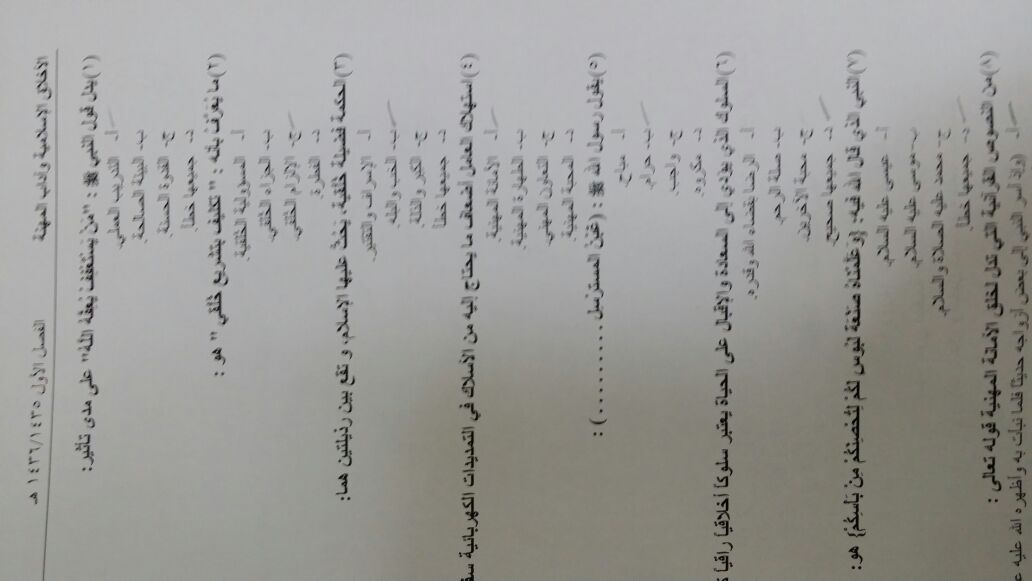 الأخلاق الإسلامية وآداب المهنة
الفصل الأول ١٤٣٦/١٤٣٥ هـ
(١) يدل قول النبي ﷺ : "مَنْ يَسْتَعْفِفْ يُعِفَّهُ اللهُ" على مدى تأثير:
أ- التدريب العملي.
ب- البيئة الصالحة.
ج- القدوة الحسنة.
د- جميعها خطأ
(٢) ما يُعْرَّفُ بأنه : " تكليف بتشريع خُلُقي " هو :
أ- المسؤولية الخُلُقية.
ب- الجزاء الخُلُقي.
ج- الإلزام الخُلُقي.
د- الفطرة.
(٣) الحكمة فضيلة خُلُقية، يَحُثُّ عليها الإسلام، و تقع بين رذيلتين هما:
أ- الإسراف والتقتير.
ب- الخب والبله.
ج- الكبر والذلة
د- جميعها خطأ
(٤) استهلاك العامل أضعاف ما يحتاج إليه من الأسلاك في التمديدات الكهربائية
أ- الأمانة المهنية.
ب- الطهارة المهنية.
ج- التعاون المهني.
د- المحبة المهنية.
(٥) يقول رسول الله ﷺ : (غَبْنُ المسترسل ..........) :
أ- مباح.
ب- حرام.
ج- واجب.
د- مكروه.
(٦) السلوك الذي يؤدي إلى السعادة والإقبال على الحياة يعتبر سلوكاً أخلاقياً راقياً
أ- الرضا بقضاء الله وقدره.
ب- صلة الرحم.
ج- محبة الآخرين.
د- جميعها صحيح.
(٧) النبي الذي قال الله فيه: {وَعَلَّمْنَاهُ صَنْعَةَ لَبُوسٍ لَكُمْ لِتُحْصِنَكُمْ مِنْ بَأْسِكُمْ} هو:
أ- عيسى عليه السلام.
ب- موسى عليه السلام.
ج- محمد عليه الصلاة والسلام.
د- جميعها خطأ.
(٨) من النصوص القرآنية التي تدل لخلق الأمانة المهنية قوله تعالى :
أ- وإذ أسر النبي إلى بعض أزواجه حديثا فلما نبأت به وأظهره الله عليه